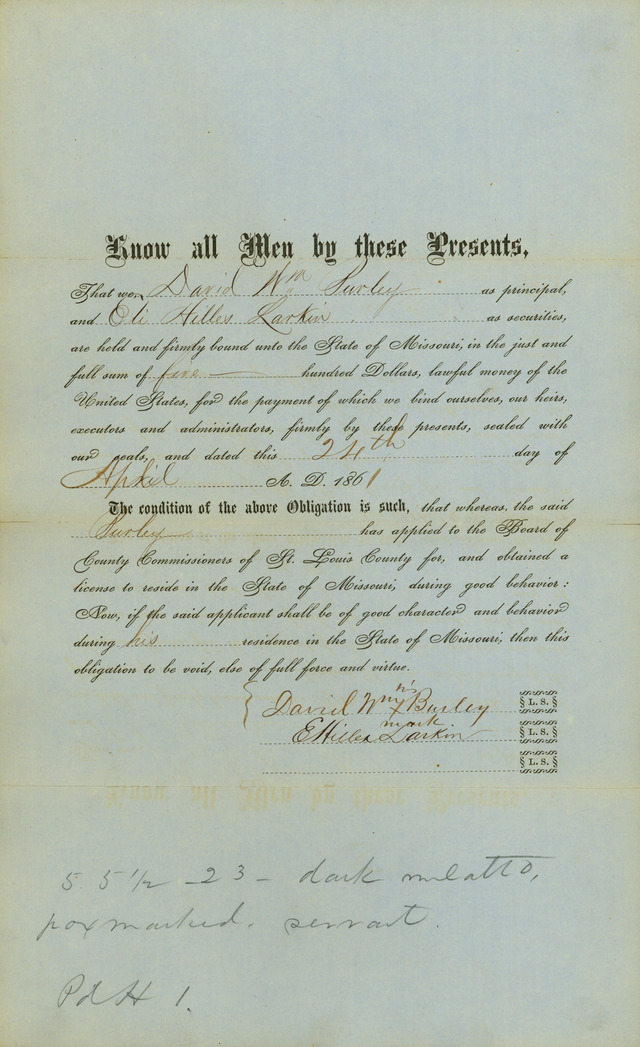 Know all Men by these Presents,
That we, David Wm Burley as principal,
and Eli Hilles Larkin as securities,
are held and firmly bound unto the State of Missouri, in the just and
full sum of five hundred Dollars, lawful money of the
United States, for the payment of which we bind ourselves, our heirs,
executors and administrators, firmly by these presents, sealed with
our seals, and dated this 24th day of
April A. D. 1861
The condition of the above Obligation is such, that whereas, the said
Burley has applied to the Board of
County Commissioners of St. Louis County for, and obtained a
license to reside in the State of Missouri, during good behavior:
Now, if the said applicant shall be of good character and behavior
during his residence in the State of Missouri, then this
obligation to be void, else of full force and virtue.
his
David Wm X Burley § L. S. §
mark
E Hilles Larkin § L. S. §
§ L. S. §
5. 5 1/2 - 23 - dark mulatto,
poxmarked. servant.
Pd H 1.